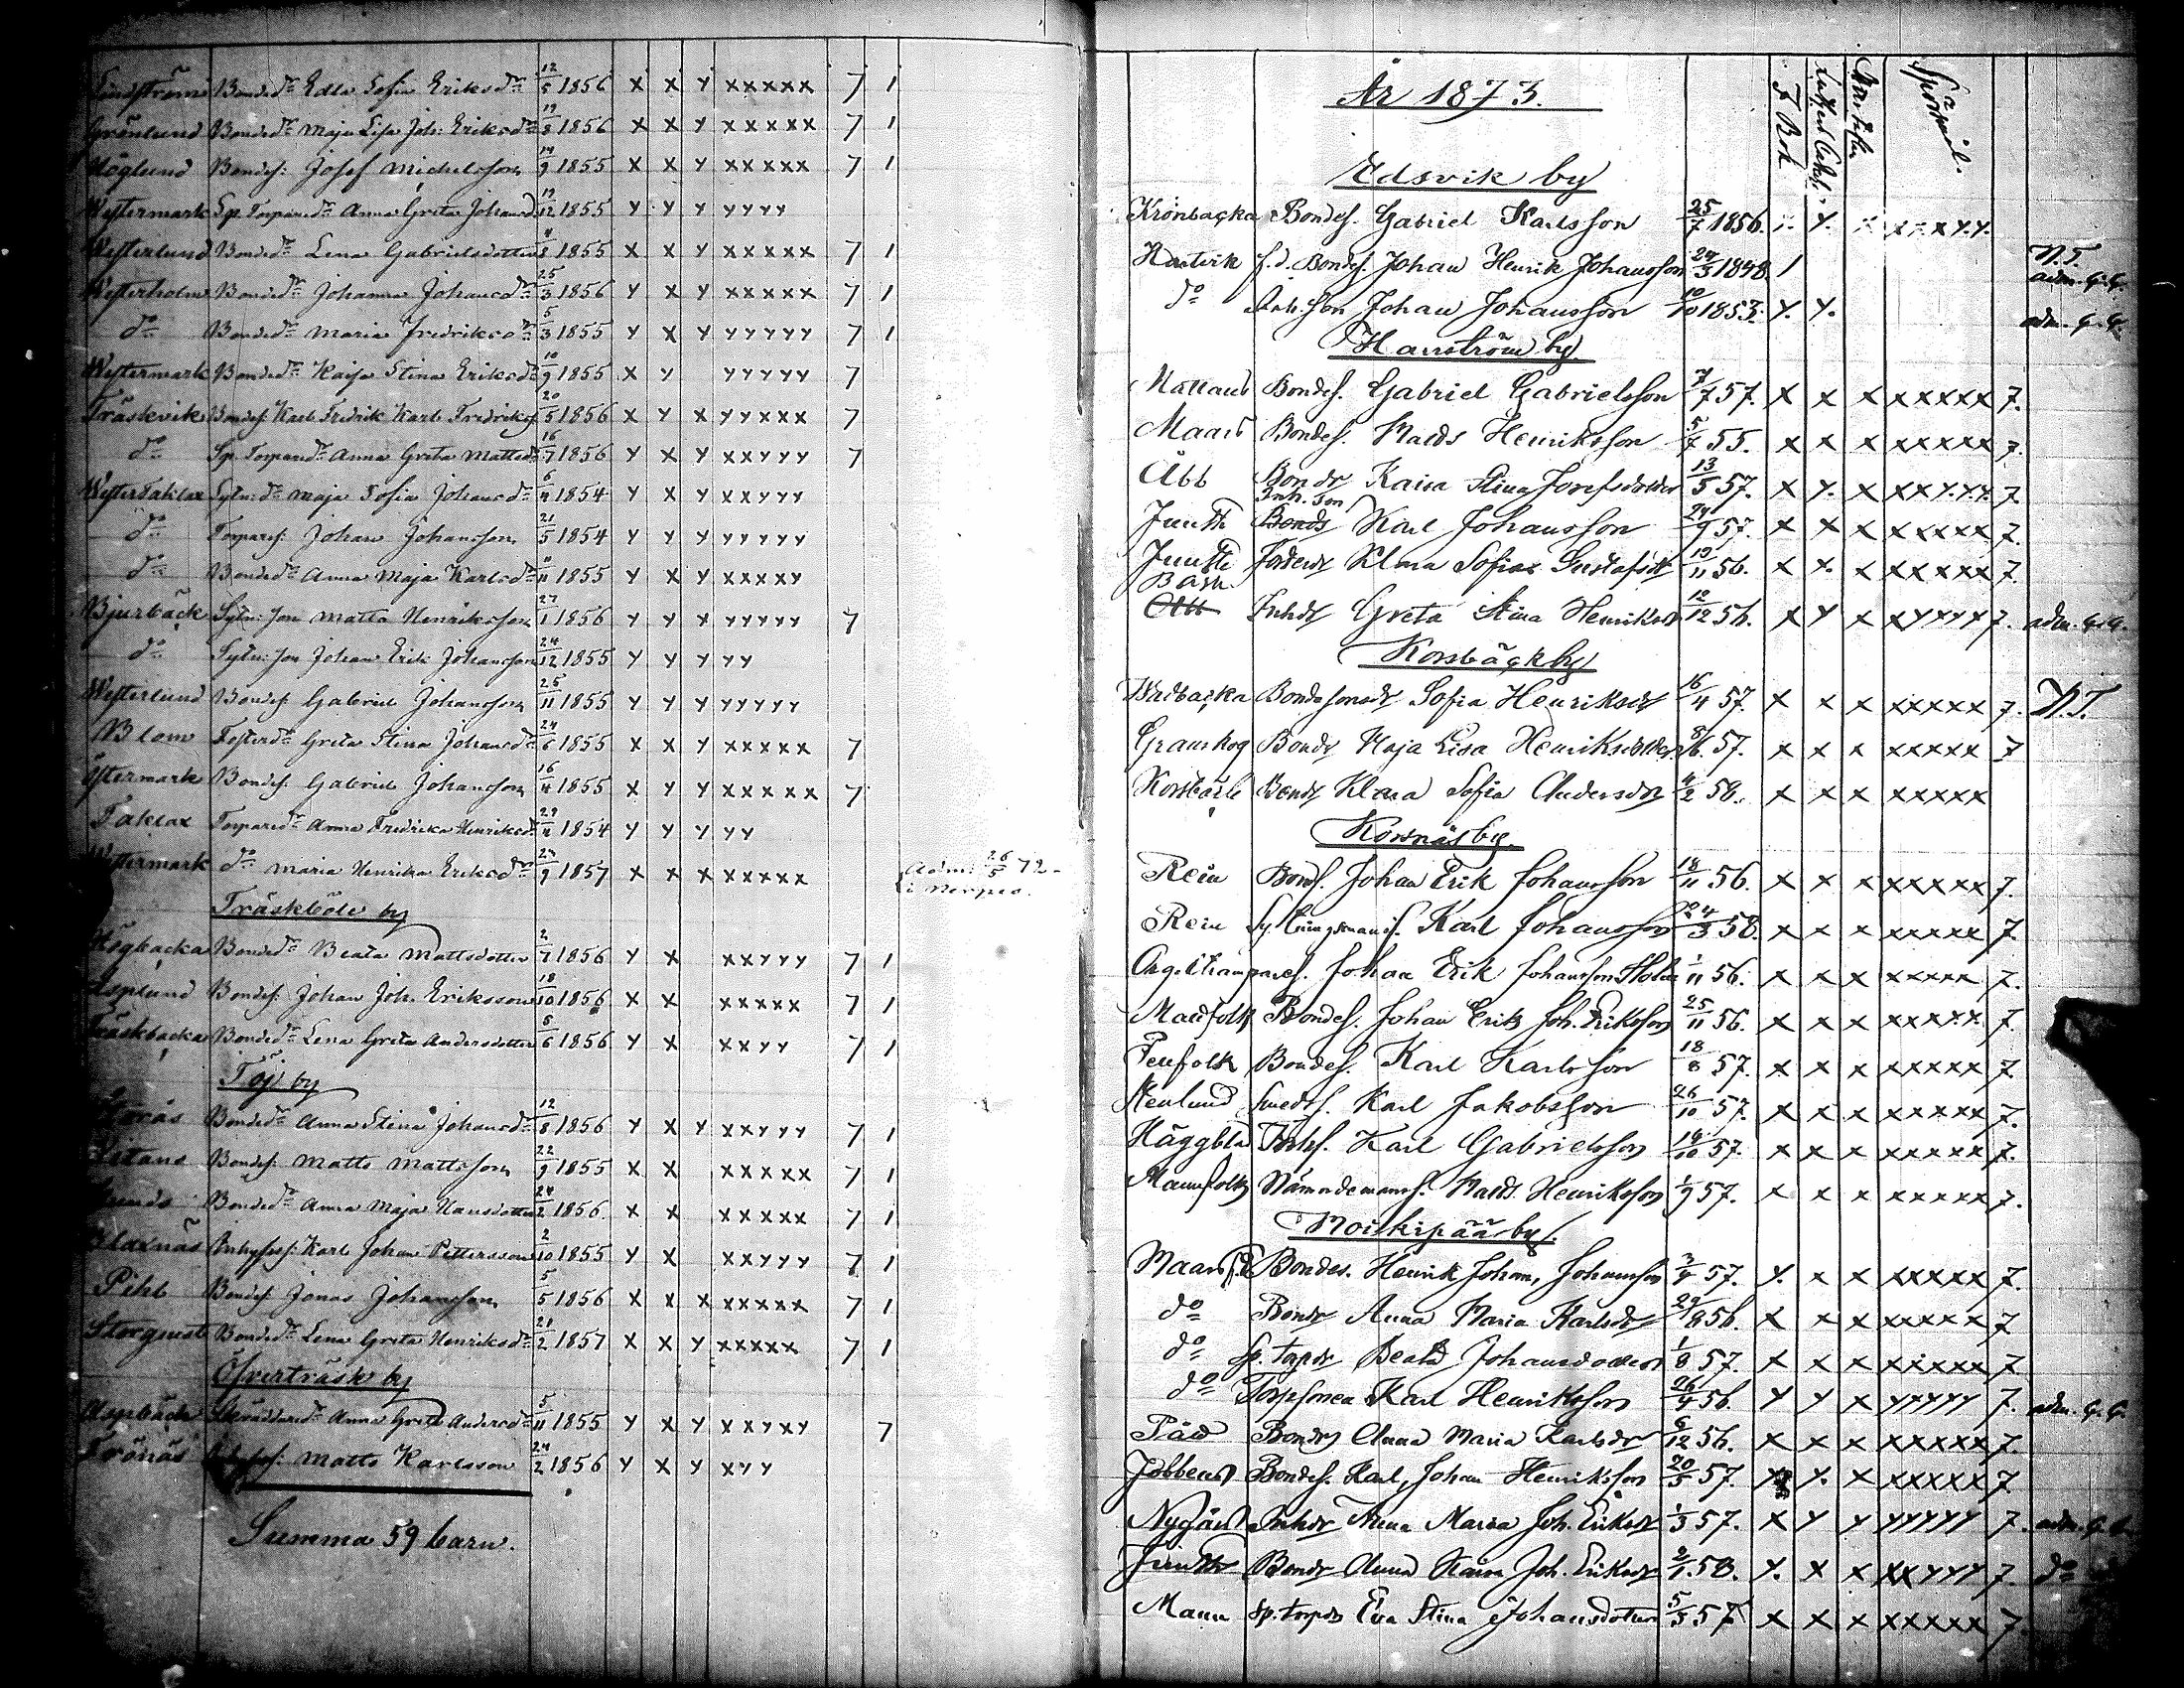 Bondedr Edla Sofia Eriksdr 12/5 1856 x x y xxxxx 7 1
Grönlund Bondedr Maja Lisa Joh: Eriksdr 1856 x x y xxxxx 7 1
Höglund Bondes: Josef Michelsson 14/9 1855 x x y xxxxx 7 1
Westermark Sp. Torparedr Anna Greta 1855 y y y yyyy
Westerlund Bondedr Lena Gabrielsdotter 1855 x x y xxxxx 7 1
Westerholm Bondedr Johanna Johansdr 25/3 1856 y x y xxxxx 7 1
do Bondedr Maria Fredriksdr 5/3 1855 y x y yyyyy 7 1
Westermark Bondedr Kajsa Stina Eriksdr 10/9 1855 x y yyyyy 7
Träskvik Bondes. Karl Fredrik Karl Fredriks 20/5 1856 x y x yyxxx 7
do Sp. Torparedr Anna Greta Mattsdr 16/7 1856 y x y xxyyy 7
Maja Sofia Johansdr 1854 y x y xxyyy
do Torpares: Johan Johansson 21/5 1854 y y y yyyyy
do Bondedr Anna Maja Karlsdr 11/11 1855 y x y xxxxy
Bjurbäck Sytn: son Matts Henriksson 27/1 1856 y y x yyyyy 7
do Sytn: son Johan Erik Johansson 24/12 1855 y y y yy
Westerlund Bondes: Gabriel Johansson 25/11 1855 y y y yyyyy
Blom Fosterdr Greta Stina Johansdr 24/6 1855 x x y xxxxx 7
Östermark Bondes. Gabriel Johansson 16/4 1855 x y y xxxxx 7
Taklax Torparedr Anna Fredrika Henriksdr 1854 y y y yy
Westermark do Maria Henrika Eriksdr 23/9 1857 x x x xxxxx Adm: 26/5 72
i Nerpes.
Träskböle by
Högbacka Bondedr Beata Mattsdotter 2/7 1856 y x xxyyy 7 1
Asplund Bondes: Johan Joh. Eriksson 18/10 1856 x x xxxxx 7 1
Träskbacka Bondedr Lena Greta Andersdotter 1856 y x xxyy 7 1
Töjby
Bondedr Anna Stina Johansdr 12/8 1856 y x y xxyyy 7 1
Bondes: Matts Mattsson 22/9 1855 x x xxxxx 7 1
Bondedr Anna Maja Hansdotter 24/2 1856 x x xxxxx 7 1
Inhyses: Karl Johan Pettersson 2/10 1855 y x xxyyy 7 1
Pihl Bondes: Jonas Johansson 5/5 1856 x x x xxxxx 7 1
Storgnest Bondedr Lena Greta Henriksdr 21/2 1857 x x y xxxxx 7 1
Öfverträsk by
Aspbäck Skräddaredr Anna Greta Andersdr 5/11 1855 y x y xxyxy 7
Matts Karlsson 24/2 1856 y x y xyy
Summa 59 barn.
År 1873.
I Bok
Spörsmål.
Edsvik by
Krönbacka Bondes. Gabriel Karlsson 25/7 1856.
f.d. Bondes. Johan Henrik Johansson 1848. 1 N.T.
adm. G.G.
do Johan Johansson 10/10 1853. y. y. adm. G.G.
Harrström by
Bondes. Gabriel Gabrielsson 7/7 57. x x x xxxxx 7.
Maars Bondes. Mats Henriksson 5/7 55. x x x xxxxx 7.
Abb Bondr Kaisa Stina Josefsdotter 13/5 57. x y. x xxyyy 7.
Inh. son
Juuth Bonds Karl Johansson 57. x x x xxxxx 7.
Juuth Fosterdr Klara Sofia Gustafsdr 56. x x x xxxxx 7.
Bask
Abb Inhdr Greta Stina Henriksdr 12/12 56. x y x xyyyy 7. adm. G.G.
Korsbäck by
Bondesonsdr Sofia Henriksdr 16/4 57. x x x xxxxx 7. N.T.
Granskog Bondr Maja Lisa Henriksdotter 57. x x x xxxxx 7
Korsbäck Bondr Klara Sofia Andersdr 4/2 58. x x x xxxxx
Korsnäs by.
Rein Bonds. Johan Erik Johansson 18/11 56. x x x xxxxx 7.
Rein Karl Johansson 24/3 58. x x x xxxxx 7.
Johan Erik Johansson Holm 1/11 56. x x x xxxxx 7.
Manfolk Bondes. Johan Erik Joh. Eriksson 25/11 56. x x x xxxxx 7.
Penfolk Bondes. Karl Karlsson 18/8 57. x x x xxxxx 7
Smeds. Karl Jakobsson 26/10 57. x x x xxxxx 7.
Häggbla Karl Gabrielsson 57. x x x xxxxx 7.
Mannfolk Nämndemans. Mats Henriksson 1/9 57. x x x xxxxx 7.
Moikipää by.
Maars Bondes. Henrik Johan, Johansson 57. y. x x xxxxx 7.
do Bondr Anna Maria Karlsdr 29/8 56. x x x xxxxx 7
do Sp. torpdr Beata Johansdotter 1/8 57. x x x xxxxx 7.
do Karl Henriksson 26/4 56. y y x yyyyy 7. adm. G.G.
Påis Bondr Anna Maria Karlsdr 6/12 56. x x x xxxxx 7.
Jobbens Bondes. Karl Johan Henriksson 20/5 57. y. x xxxxx 7
Nygård Inhdr Anna Maria Joh. Eriksdr 1/3 57. x y y yyyyy 7. adm. G.G.
Juuth Bondr Anna Kaisa Joh. Eriksdr 58. y. x x xxyyy 7. do
Mann Sp. torpdr Eva Stina Johansdotter 5/5 57 x x x xxxxx 7